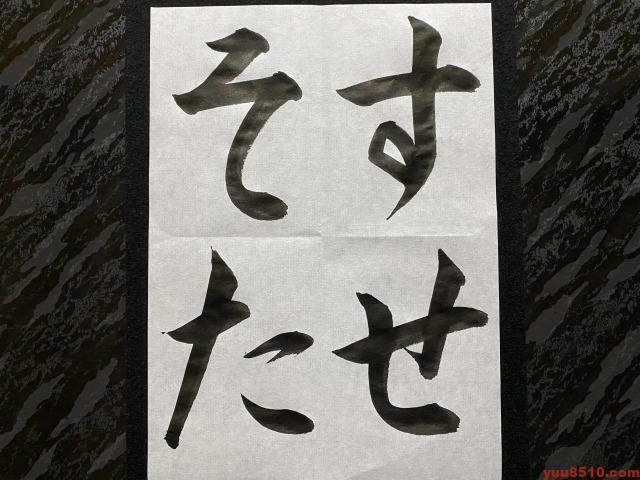 すせ
そた
yuu8510.com